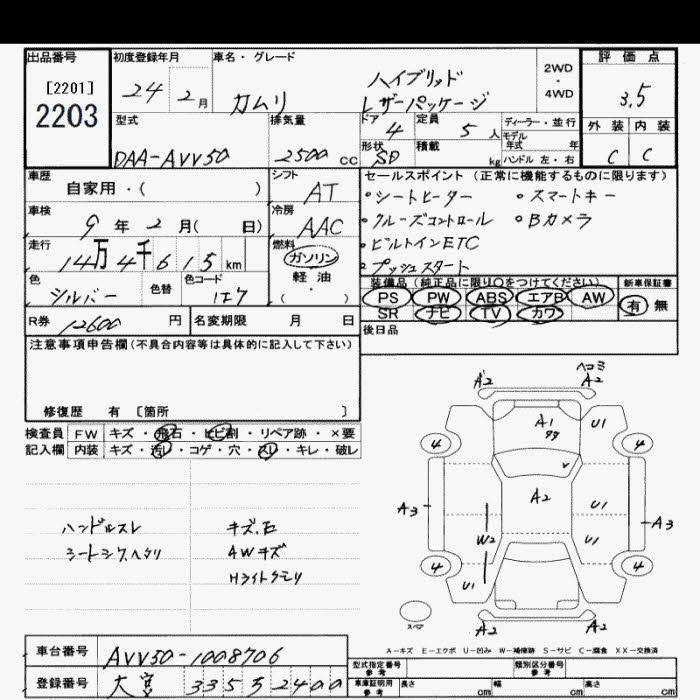 出品番号
[2201]
2203
初度登録年月
24 2月
車名・グレード
カムリ
ハイブリッド
レザーパッケージ
2WD
・
4WD
評価点
3.5
外装 内装
C C
型式
DAA-AVV50
排気量
2500 cc
ドア 4
形状 SD
定員 5 人
積載 kg
ディーラー・並行
モデル
年式 年
ハンドル 左・右
車歴
自家用・( )
車検
9年 2月( 日)
走行
14万4千615 km
色
シルバー
色替
色コード
1F7
シフト
AT
冷房
AAC
燃料
ガソリン
・
軽油
・
セールスポイント (正常に機能するものに限ります)
・シートヒーター ・スマートキー
・クルーズコントロール ・Bカメラ
・ビルトインETC
・プッシュスタート
装備品(純正品に限り○をつけてください)
PS PW ABS エアB AW
SR ナビ TV カワ
新車保証書
有 無
後日品
R券 12600 円 名変期限 月 日
注意事項申告欄(不具合内容等は具体的に記入して下さい)
修復歴 有 [箇所 ]
検査員 FW キズ・飛石・ヒビ割・リペア跡・×要
記入欄 内装 キズ・汚レ・コゲ・穴・スレ・キレ・破レ
ハンドルスレ
シートシワヘタリ
キズ、石
AWキズ
Hライトクモリ
ヘコミ
A2 A2
A1 U1
4 4
A2
A3 U1 A3
W2 U1
4 4
U1
スペア
A2 A2
A-キズ E-エクボ U-凹み W-補修跡 S-サビ C-腐食 XX-交換済
車台番号 AVV50-1008706
登録番号 大宮 335 そ 2400
型式指定番号
参考
類別区分番号
参考
車庫証明用
参考
長さ cm 幅 cm 高さ cm